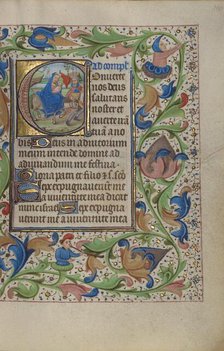 ad compl
Onuerte
nos deus
salutaris
noster et
auerte ira
tuā a no
bis Deus in adiutorium
meum intende domine ad
adiuuandum me festina
Gloria patri et filio
Sepe expugnauerūt me
a iuuentute mea dicat
nunc israel Sepe expugna
uerunt me a iuuentute mea